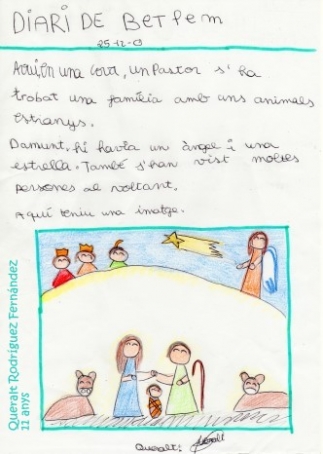 DIARI DE BETLEM
25-12-0
Aquí en una cova, un Pastor s'ha
trobat una família amb uns animals
estranys.
Damunt, hi havia un àngel i una
estrella. També s'han vist moltes
persones al voltant.
Aquí teniu una imatge.
Queralt Rodríguez Fernández
11 anys
Queralt: